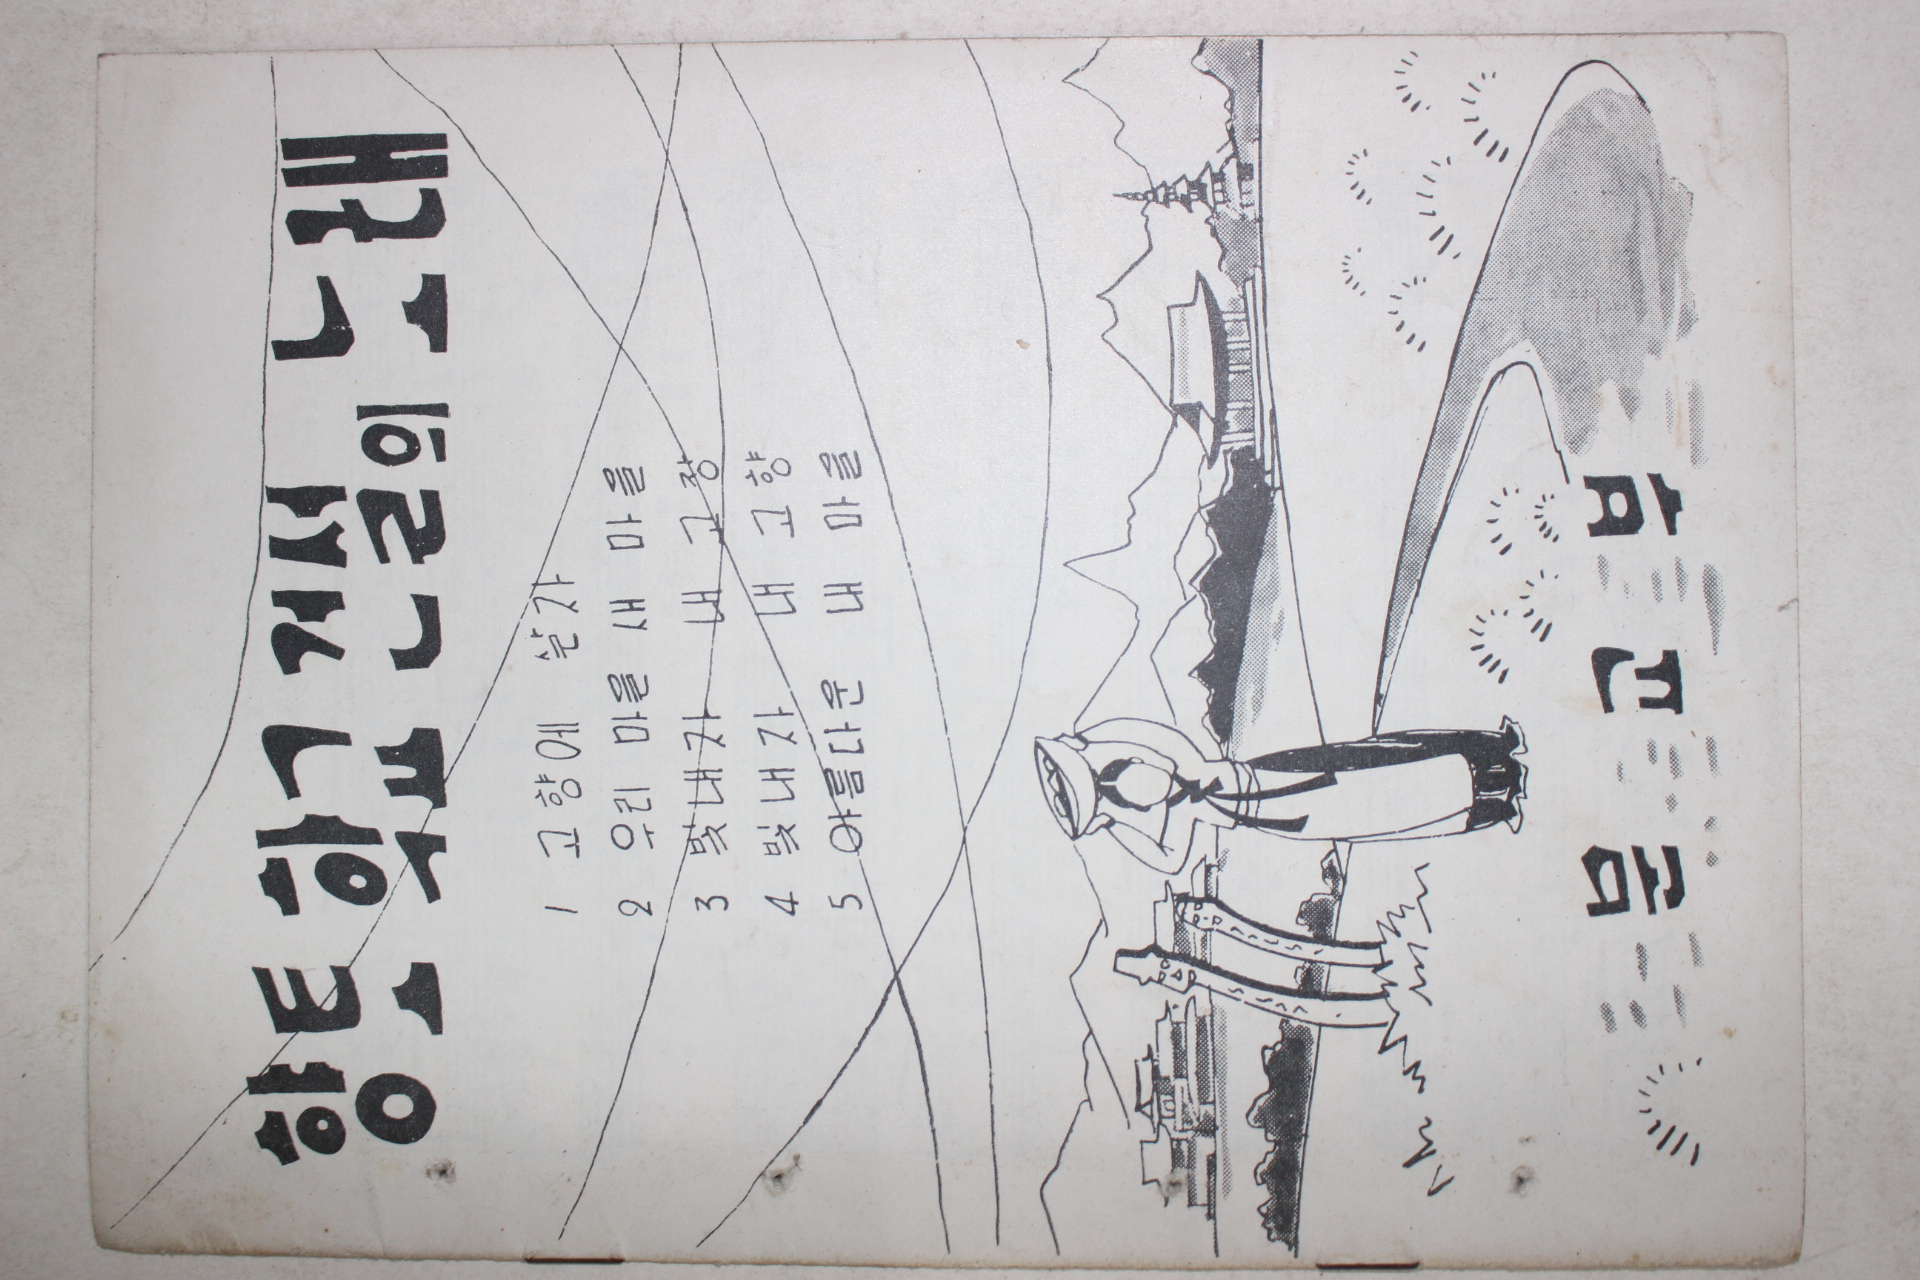 향토 학교 건설의 노래
1 고향에 살자
2 우리 마을 새 마을
3 빛내자 내 고장
4 빛내자 내 고향
5 아름다운 내 마을
문교부